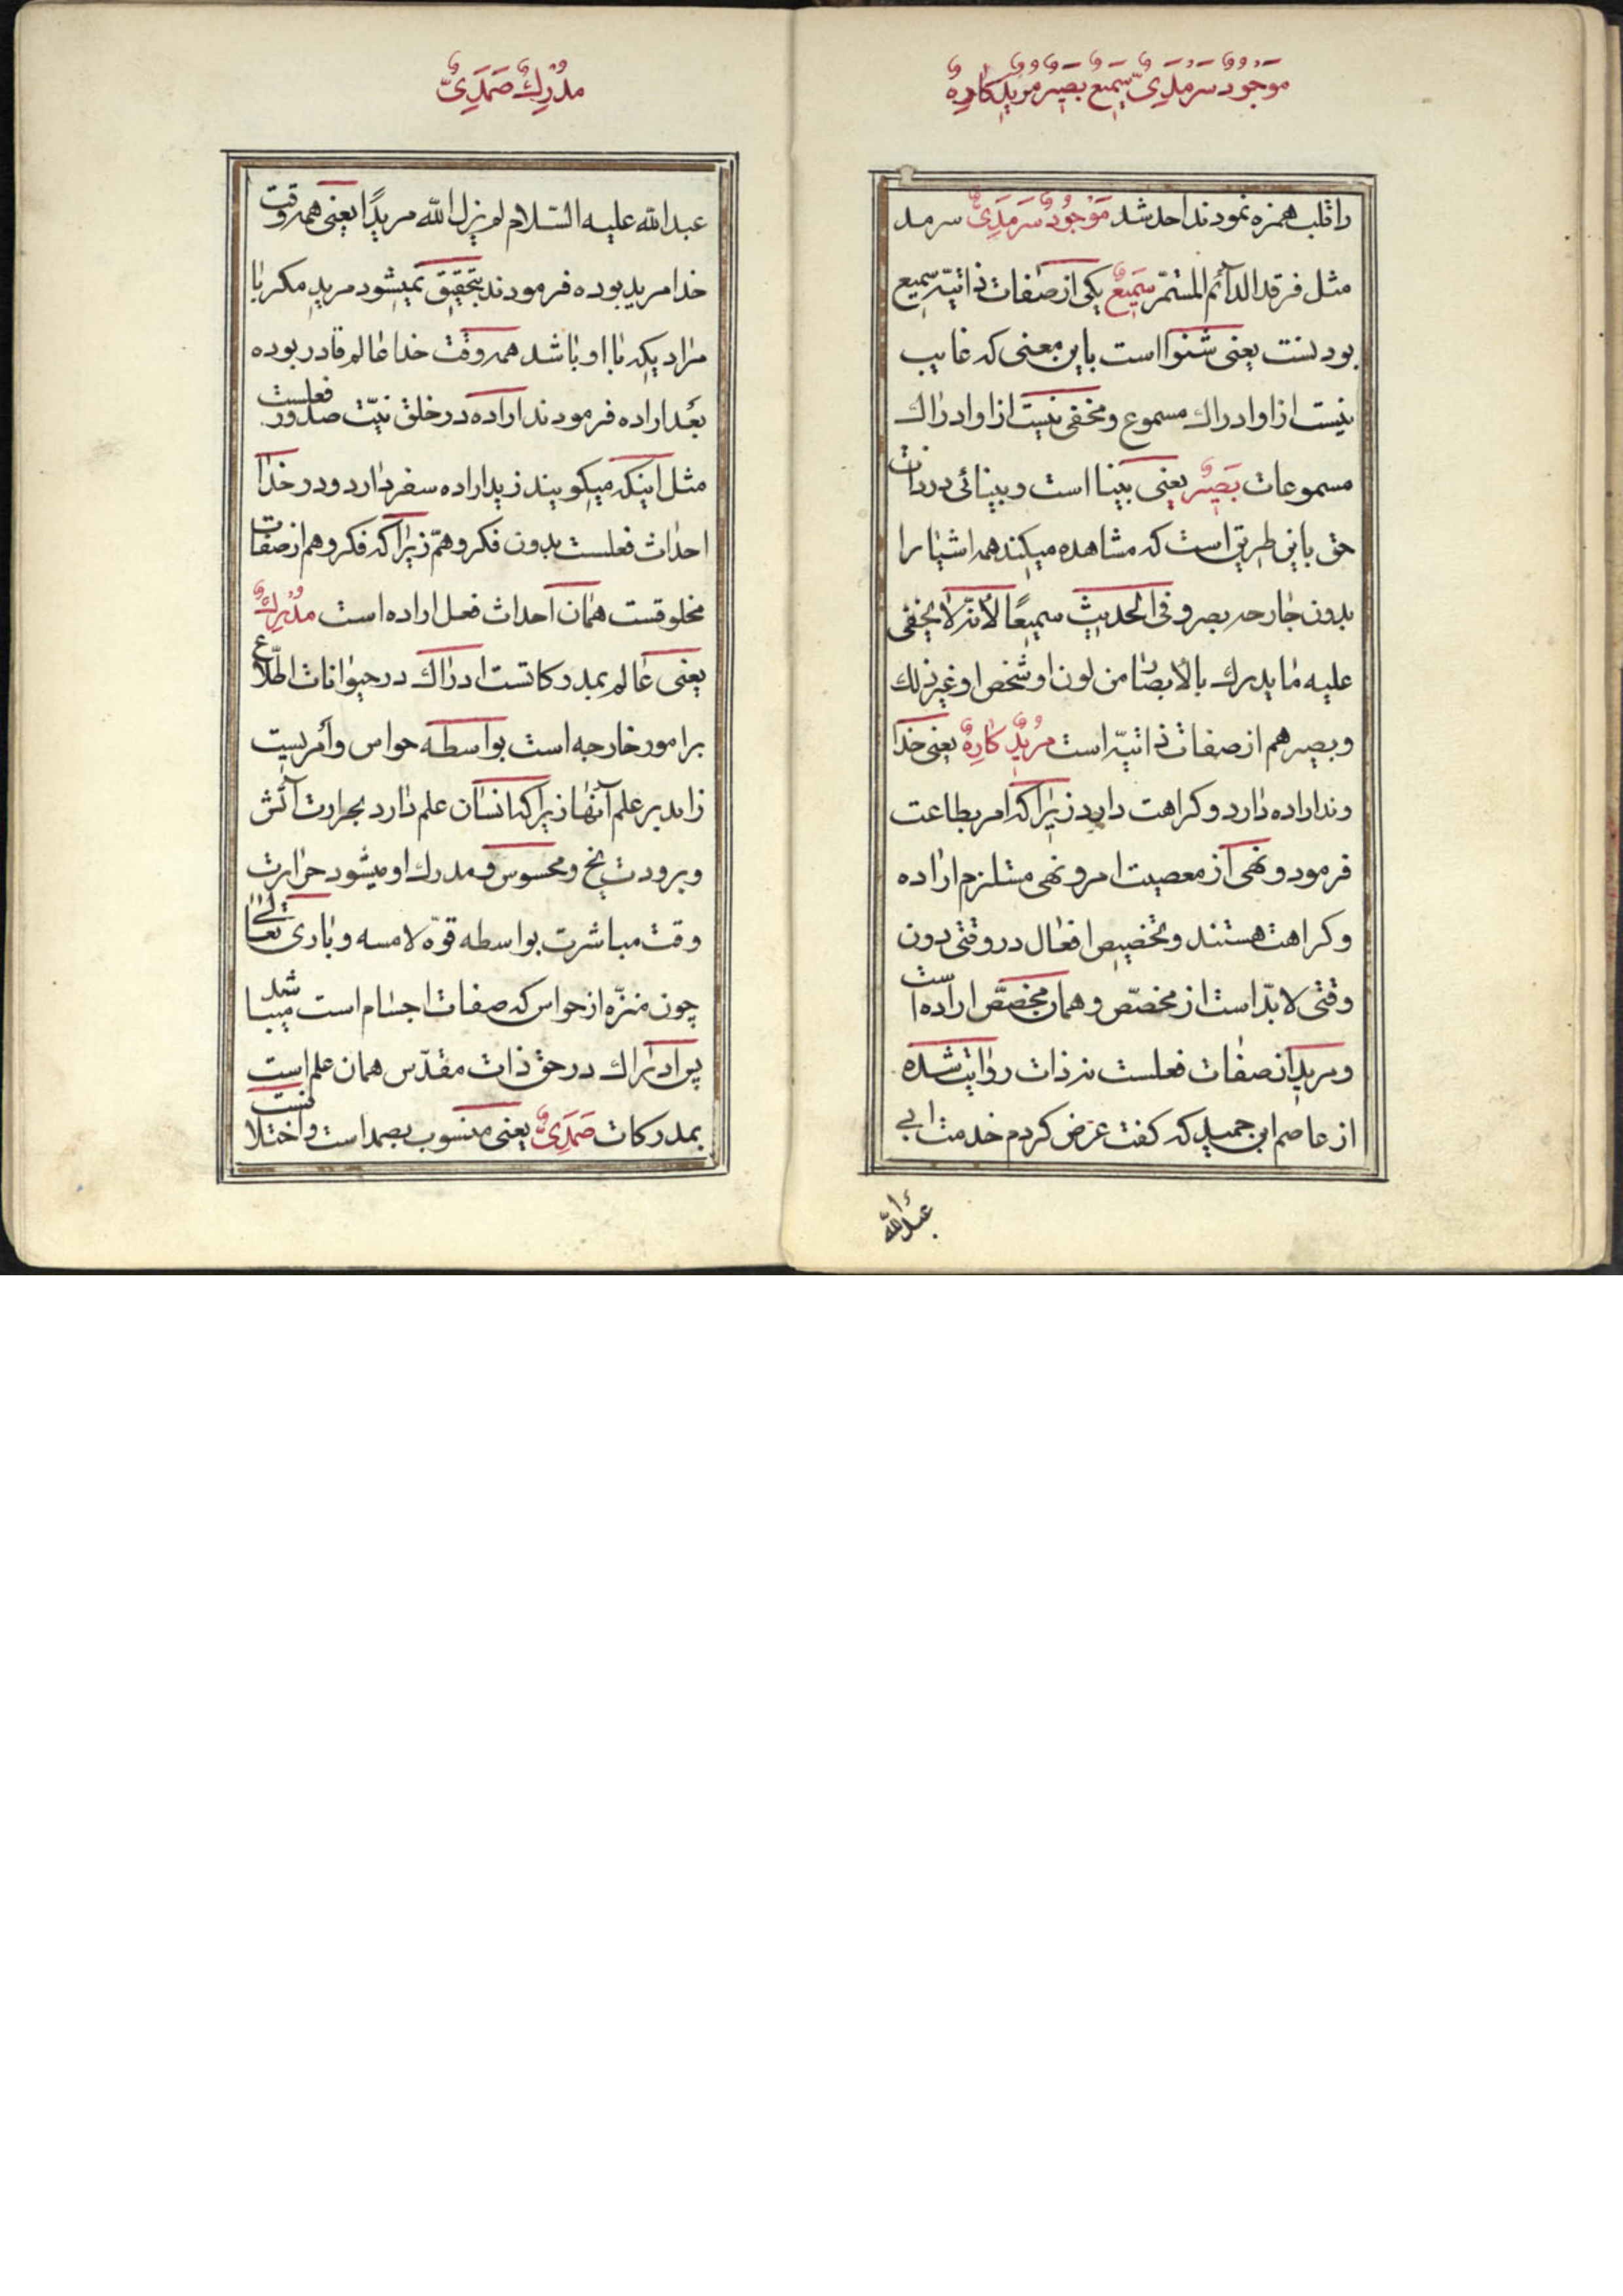 مَوْجُودٌ سَرْمَدِیٌّ سَمِیعٌ بَصِیرٌ مُرِیدٌ کَارِهٌ
را قلب همزه نمودند احد شد مَوْجُودٌ سَرْمَدِیٌّ سرمد
مثل فرقد الدآئم المستمرّ سَمِیعٌ یکی از صفات ذاتیّه سمیع
بودنست یعنی شنوا است باین معنی که غایب
نیست از او ادراك مسموع و مخفی نیست از او ادراك
مسموعات بَصِیرٌ یعنی بینا است و بینائی در ذات
حق باین طریق است که مشاهده میکند همه اشیا را
بدون جارحه بصر و فی الحدیث سمیعًا لأنّه لا یخفی
علیه ما یدرك بالأبصار من لون او شخص او غیر ذلك
و بصیر هم از صفات ذاتیّه است مُرِیدٌ کَارِهٌ یعنی خدا
وند اراده دارد و کراهت دارد زیرا که امر بطاعت
فرمود و نهی از معصیت امر و نهی مستلزم اراده
و کراهت هستند و تخصیص افعال در وقتی دون
وقتی لا بدّ است از مخصّص و همان مخصّص اراده است
و مرید از صفات فعلست نه ذات روایت شده
از عاصم ابن حمید که کفت عرض کردم خدمت ابی
عبدالله
مُدْرِكٌ صَمَدِیٌّ
عبدالله علیه السّلام لم یزل الله مریدًا یعنی همه وقت
خدا مرید بوده فرمودند بتحقیق نمیشود مرید مکر با
مرادیکه با او باشد همه وقت خدا عالم قادر بوده
بعد اراده فرمودند اراده در خلق نیّت صدور فعلست
مثل اینکه میکویند زید اراده سفر دارد و در خدا
احداث فعلست بدون فکر و همّ زیرا که فکر و هم از صفات
مخلوقست همان احداث فعل اراده است مُدْرِكٌ
یعنی عالم بمدرکاتست ادراك در حیوانات اطّلاع
بر امور خارجه است بواسطه حواس و امریست
زاید بر علم آنها زیرا که انسان علم دارد بحرارت آتش
و برودت یخ و محسوس و مدرك او میشود حرارت
وقت مباشرت بواسطه قوّه لامسه و باری تعالی
چون منزّه از حواس که صفات اجسام است میباشد
پس ادراك در حق ذات مقدّس همان علم است
بمدرکات صَمَدِیٌّ یعنی منسوب بصمد است و اختلا